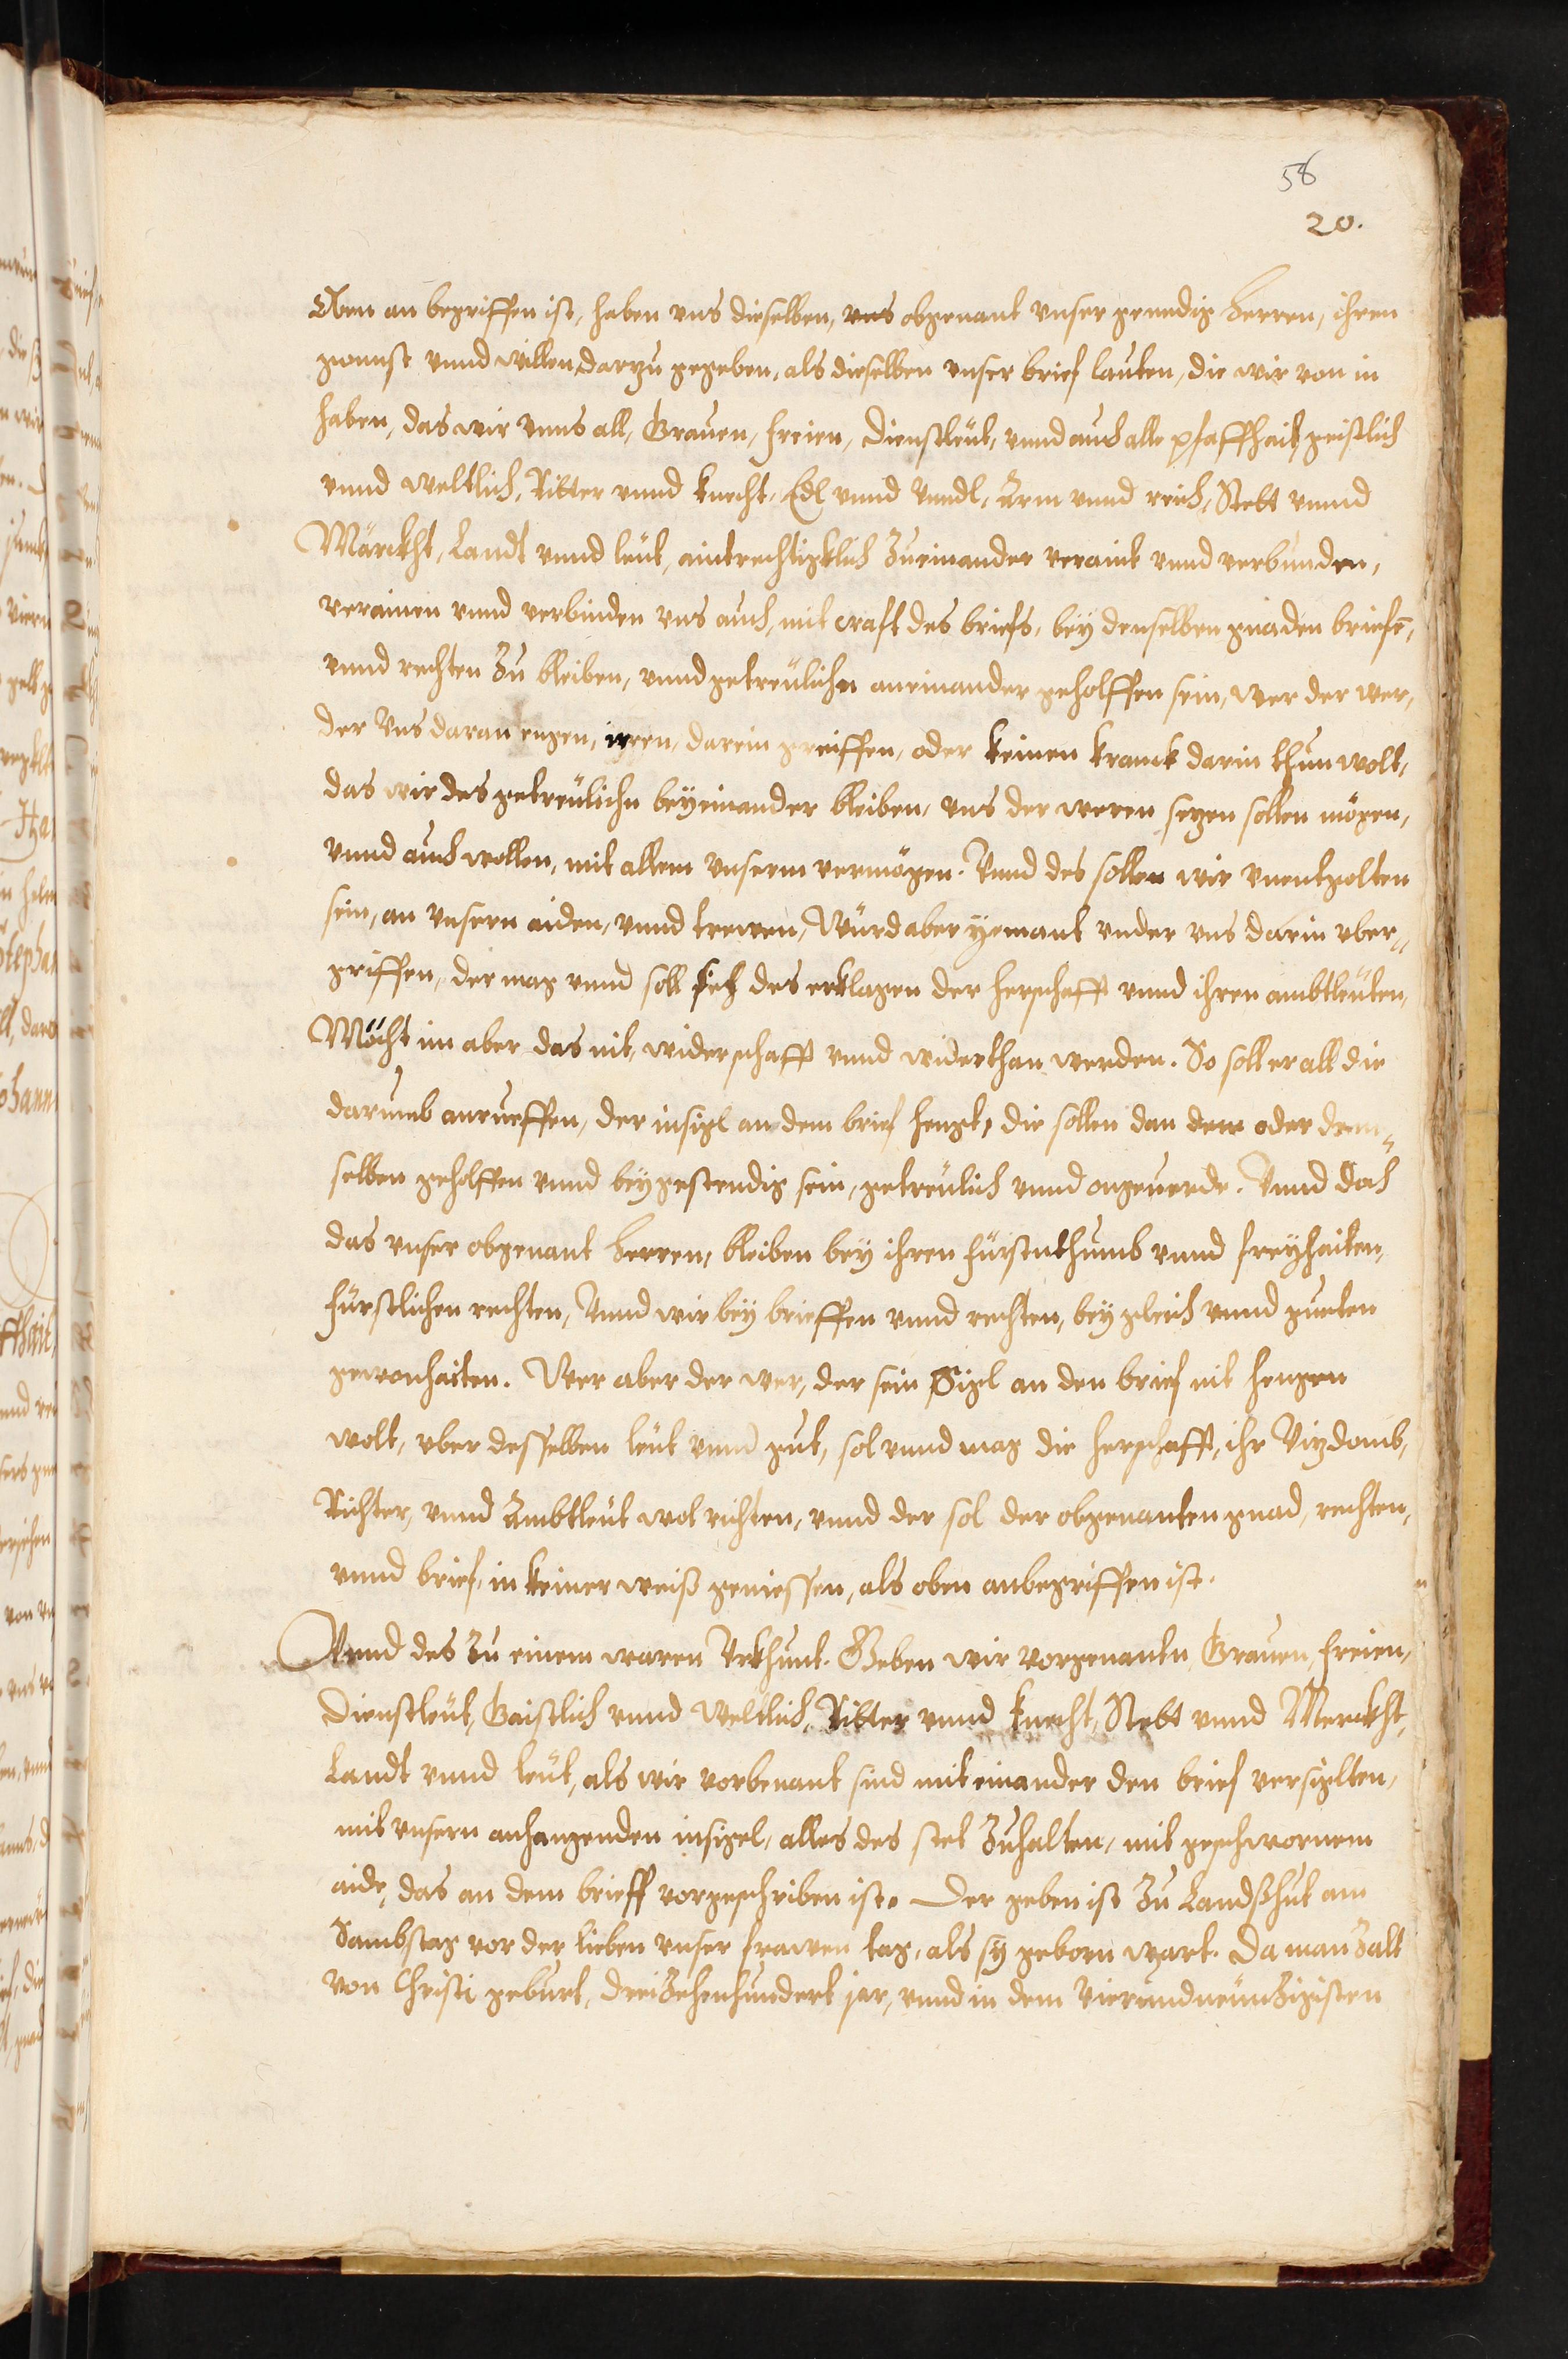 58
20.
Oben an begriffen ist, haben vns dieselben, vns obgenant vnser genedig Herren, ihren
gonnst vnnd willen darzu gegeben, als dieselben vnser brief lauten, die wir von in
haben, das wir vnns all, Grauen, freien, dienstleüt, vnnd auch alle pfaffhait, geistlich
vnnd weltlich, Ritter vnnd knecht, Edl vnnd Vnedl, Arm vnnd reich, Stett vnnd
Märckht, Landt vnnd leüt, aintrechtigklich Zueinander veraint vnnd verbunden,
verainen vnnd verbinden vns auch, mit craft des briefs, bey denselben gnaden briefē,
vnnd rechten Zu bleiben, vnnd getreülichn aneinander geholffen sein, wer der wer,
der Vns daran engen, irren, darein greiffen, oder keinen kranck darin thun wolt,
das wir des getreülichn beyeinander bleiben, vns der weren sezen sollen mögen,
vnnd auch wollen, mit allem vnserm vermögen. Vnnd des sollen wir vnentgolten
sein, an vnsern aiden, vnnd trewen, Würd aber yemant vnder vns darin vber„
griffen, der mag vnnd soll sich des erklagen der herschafft vnnd ihren ambtleüten,
Möcht im aber das nit, widerschafft vnnd widerthan werden. So soll er all die
darumb anrueffen, der insigl an dem brief hengt, die sollen dan dem oder dem„
selben geholffen vnnd beygestendig sein, getreülich vnnd ongeuerde. Vnnd doch
das vnser obgenant Herren, bleiben bey ihren fürstnthumb vnnd freyhaiten,
fürstlichen rechten, Vnnd wir bey brieffen vnnd rechten, bey gleich vnnd gueten
gewonhaiten. Wer aber der wer, der sein Sigl an den brief nit hengen
wolt, vber desselben leüt vnnd gut, sol vnnd mag die herschafft, ihr Vizdomb,
Richter, vnnd Ambtleüt wol richten, vnnd der sol der obgenanten gnad, rechten,
vnnd brief, in keiner weiß geniessen, als oben anbegriffen ist.
Vnnd des Zu einem waren Vrkhunt. Geben wir vorgenantn Grauen, freien,
dienstleüt, Gaistlich vnnd Weltlich, Ritter vnnd knecht, Stett vnnd Merckht,
Landt vnnd leüt, als wir vorbenant sind mit einander den brief versiglten,
mit vnsern anhangenden insigel, alles des stet Zuhalten, mit geschwornem
aide, das an dem brieff vorgeschriben ist. Der geben ist Zu Landßhut am
Sambstag vor der lieben vnser frawen tag, als sy geborn wart. Da man Zalt
von Christi geburt, dreiZehenhundert jar, vnnd in dem VierundneünZigisten